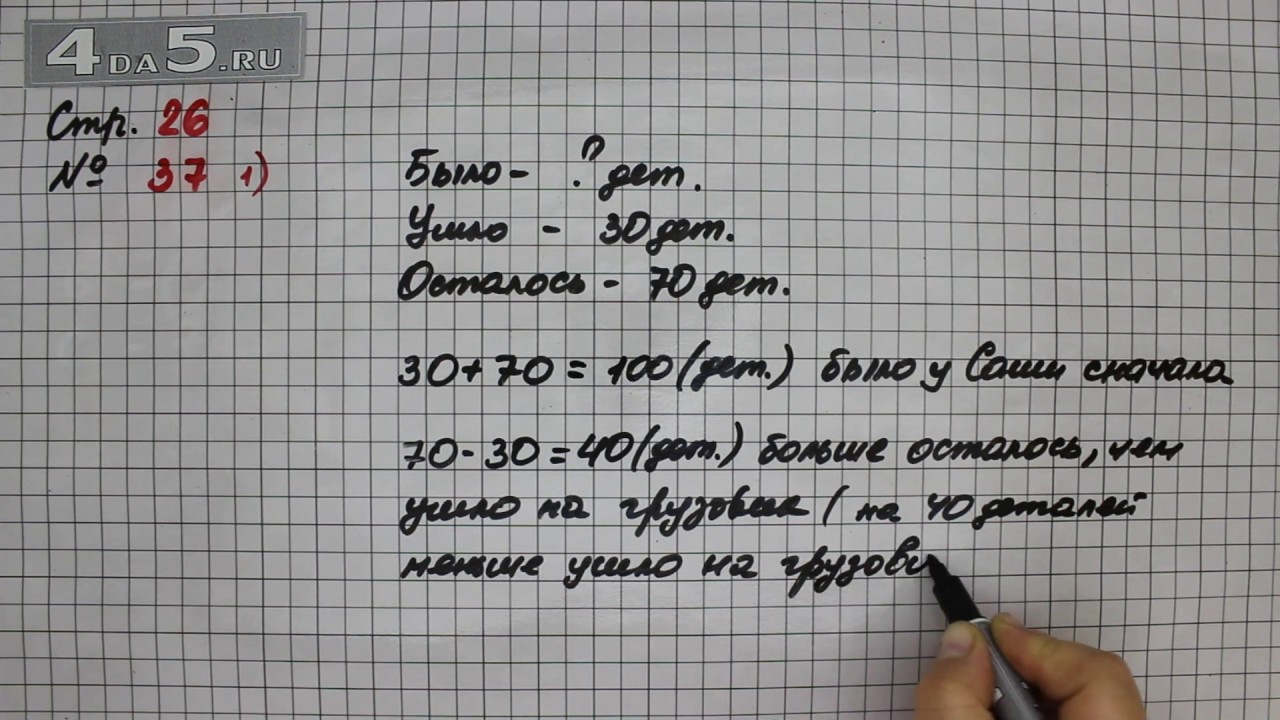 4DA5.RU
Стр. 26
№ 37 1)
Было - ? дет.
Ушло - 30 дет.
Осталось - 70 дет.
30+70=100(дет.) было у Саши сначала
70-30=40(дет.) больше осталось, чем
ушло на грузовик (на 40 деталей
меньше ушло на грузови